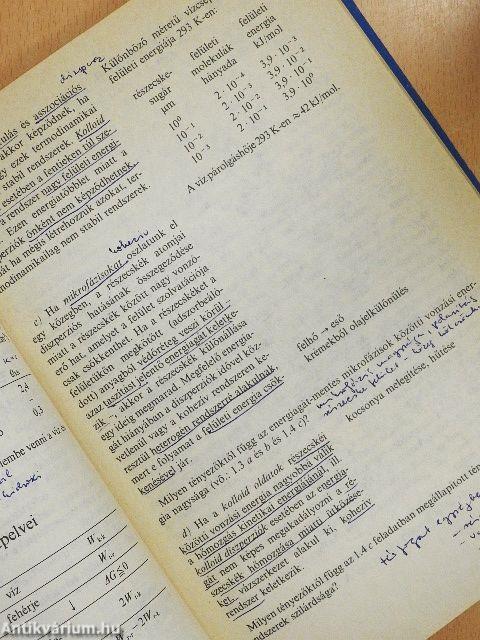 diszperz
ulás és asszociációs
akkor képződnek, ha
gy ezek termodinamikai
stabil rendszerek. Kolloid
esetében a fentieken túl sze-
a rendszer nagy felületi energi-
Ezen energiatöbblet miatt a
perziók önként nem képződhetnek.
át ha mégis létrehozzuk azokat, ter-
modinamikailag nem stabil rendszerek.
Különböző méretű vízcsep
felületi energiája 293 K-en:
részecske-
sugár
µm
felületi
molekulák
hányada
felületi
energia
kJ/mol
10⁰ 2 · 10⁻⁴ 3,9 · 10⁻³
10⁻¹ 2 · 10⁻³ 3,9 · 10⁻²
10⁻² 2 · 10⁻² 3,9 · 10⁻¹
10⁻³ 2 · 10⁻¹ 3,9 · 10⁰
A víz párolgáshője 293 K-en ≈ 42 kJ/mol.
kohezív
c) Ha mikrofázisokat oszlatunk el
egy közegben, a részecskék atomjai
diszperziós hatásának összegeződése
miatt a részecskék között nagy vonzó-
erő hat, amelyet a felület szolvatációja
csak csökkenthet. Ha a részecskéket a
felületükön megkötött (adszorbeáló-
dott) anyagból védőréteg veszi körül –
azaz taszítást jelentő energiagát keletke-
zik –, akkor a részecskék különállása
egy ideig megmarad. Megfelelő energia-
gát hiányában a diszperziós idővel köz-
vetlenül vagy a kohezív rendszeren ke-
resztül heterogén rendszerré alakulnak,
mert e folyamat a felületi energia csök-
kenésével jár.
felhő → eső
kremekből olajelkülönülés
Milyen tényezőktől függ az energiagát-mentes mikrofázisok közötti vonzási ener-
gia nagysága (vö.: 1.3 a és b és 1.4 c)?
d) Ha a kolloid oldatok részecskéi
közötti vonzási energia nagyobbá válik
a hőmozgás kinetikai energiájánál, ill.
kolloid diszperziók esetében az energia-
gát nem képes megakadályozni a ré-
szecskék hőmozgása miatti ütközése-
ket, vázszerkezet alakul ki, kohezív
rendszer keletkezik.
kocsonya melegítése, hűtése
Milyen tényezőktől függ az 1.4 c feladatban megállapított tén
rendszerek szilárdsága?
2,4
0,3
lembe venni a víz é
epelvei
víz
fehérje
ΔG ≦ 0
Antikvárium.hu